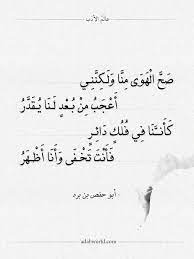 عالم الأدب
صَحَّ الْهَوَى مِنَّا وَلَكِنَّنِي
أَعْجَبُ مِنْ بُعْدٍ لَنَا يُقْدَرُ
كَأَنَّنَا فِي فُلُكٍ دَائِرٍ
فَأَنْتَ تَخْفَى وَأَنَا أَظْهَرُ
- أبو حفص بن برد
adabworld.com